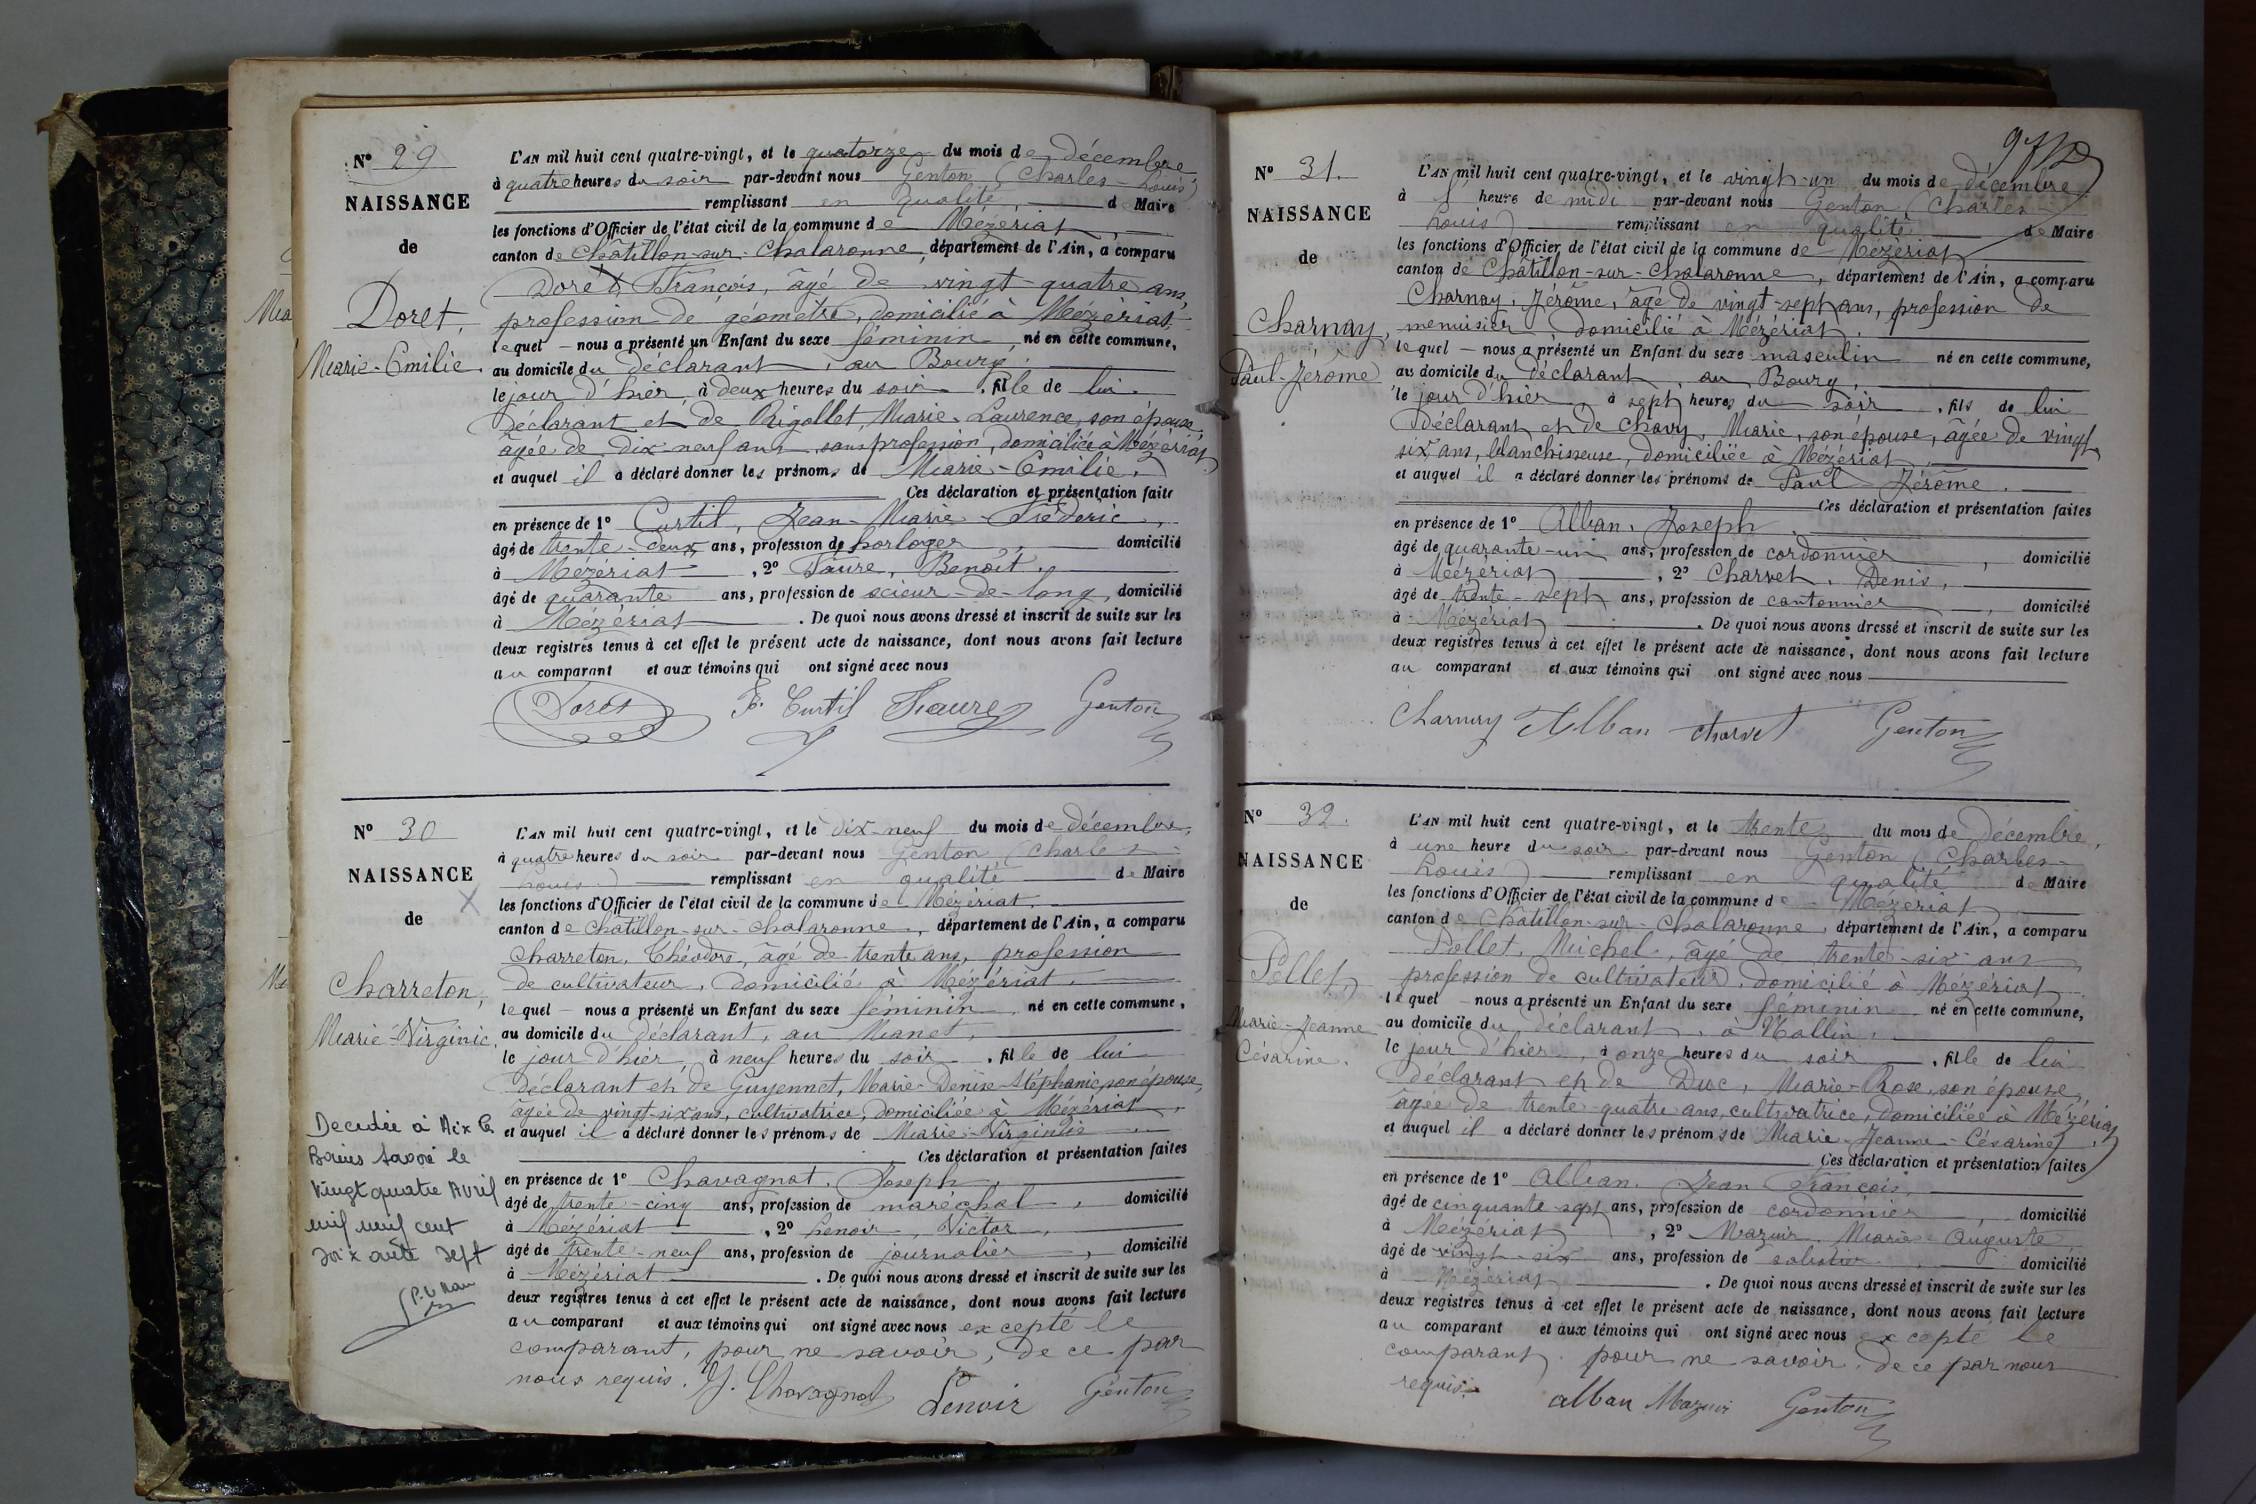 N° 29
NAISSANCE
de
Doret,
Marie-Emilie.
L'AN mil huit cent quatre-vingt, et le quatorze du mois de décembre
à quatre heures du soir par-devant nous Genton (Charles-Louis)
remplissant en qualité, de Maire
les fonctions d'Officier de l'état civil de la commune de Mézériat,
canton de Châtillon-sur-Chalaronne, département de l'Ain, a comparu
Doret, François, âgé de vingt-quatre ans,
profession de géomètre, domicilié à Mézériat
lequel — nous a présenté un Enfant du sexe féminin, né en cette commune,
au domicile du déclarant, au Bourg.
le jour d'hier, à deux heures du soir, fille de lui
déclarant et de Rigollet, Marie-Laurence, son épouse,
âgée de dix-neuf ans, sans profession, domiciliée à Mézériat,
et auquel il a déclaré donner les prénoms de Marie-Emilie.
Ces déclaration et présentation faite
en présence de 1° Curtil, Jean-Marie-Fréderic,
âgé de trente-deux ans, profession de horloger, domicilié
à Mézériat, 2° Faure, Benoît,
âgé de quarante ans, profession de scieur-de-long, domicilié
à Mézériat. De quoi nous avons dressé et inscrit de suite sur les
deux registres tenus à cet effet le présent acte de naissance, dont nous avons fait lecture
au comparant et aux témoins qui ont signé avec nous
Doret F. Curtil Faure Genton
N° 30
NAISSANCE
de
Charreton,
Marie-Virginie.
Decedée à Aix les
Bains Savoie le
vingt quatre Avril
mil neuf cent
soixante sept
L'AN mil huit cent quatre-vingt, et le dix-neuf du mois de décembre,
à quatre heures du soir par-devant nous Genton (Charles-
Louis) remplissant en qualité de Maire
les fonctions d'Officier de l'état civil de la commune de Mézériat,
canton de Châtillon-sur-Chalaronne, département de l'Ain, a comparu
Charreton, Théodore, âgé de trente ans, profession
de cultivateur, domicilié à Mézériat,
lequel — nous a présenté un Enfant du sexe féminin, né en cette commune,
au domicile du déclarant, au Manet,
le jour d'hier, à neuf heures du soir, fille de lui
déclarant et de Guyennet, Marie-Denise-Stéphanie, son épouse,
âgée de vingt-six ans, cultivatrice, domiciliée à Mézériat,
et auquel il a déclaré donner les prénoms de Marie-Virginie
Ces déclaration et présentation faites
en présence de 1° Chavagnat, Joseph,
âgé de trente-cinq ans, profession de maréchal, domicilié
à Mézériat, 2° Lenoir, Victor,
âgé de trente-neuf ans, profession de journalier, domicilié
à Mézériat. De quoi nous avons dressé et inscrit de suite sur les
deux registres tenus à cet effet le présent acte de naissance, dont nous avons fait lecture
au comparant et aux témoins qui ont signé avec nous excepté le
comparant, pour ne savoir, de ce par
nous requis. J. Chavagnat Lenoir Genton
N° 31.
NAISSANCE
de
Charnay,
Paul-Jérôme
L'AN mil huit cent quatre-vingt, et le vingt-un du mois de décembre
à l'heure de midi par-devant nous Genton (Charles-
Louis) remplissant en qualité de Maire
les fonctions d'Officier de l'état civil de la commune de Mézériat
canton de Châtillon-sur-Chalaronne, département de l'Ain, a comparu
Charnay, Jérôme, âgé de vingt-sept ans, profession de
menuisier, domicilié à Mézériat,
lequel — nous a présenté un Enfant du sexe masculin né en cette commune,
au domicile du déclarant, au Bourg,
le jour d'hier, à sept heures du soir, fils de lui
déclarant et de Chavy, Marie, son épouse, âgée de vingt
six ans, blanchisseuse, domiciliée à Mézériat
et auquel il a déclaré donner les prénoms de Paul Jérôme.
Ces déclaration et présentation faites
en présence de 1° Alban, Joseph
âgé de quarante-un ans, profession de cordonnier, domicilié
à Mézériat, 2° Charvet, Denis,
âgé de trente-sept ans, profession de cantonnier, domicilié
à Mézériat. De quoi nous avons dressé et inscrit de suite sur les
deux registres tenus à cet effet le présent acte de naissance, dont nous avons fait lecture
au comparant et aux témoins qui ont signé avec nous
Charnay Alban Charvet Genton
N° 32.
NAISSANCE
de
Pellet,
Marie-Jeanne
Césarine.
L'AN mil huit cent quatre-vingt, et le trente du mois de décembre,
à une heure du soir par-devant nous Genton (Charles-
Louis) remplissant en qualité de Maire
les fonctions d'Officier de l'état civil de la commune de Mézériat
canton de Châtillon-sur-Chalaronne, département de l'Ain, a comparu
Pellet, Michel, âgé de trente-six ans,
profession de cultivateur, domicilié à Mézériat
lequel — nous a présenté un Enfant du sexe féminin né en cette commune,
au domicile du déclarant, à
le jour d'hier, à onze heures du soir, fille de lui
déclarant et de Duc, Marie-Rose, son épouse,
âgée de trente-quatre ans, cultivatrice, domiciliée à Mézériat,
et auquel il a déclaré donner les prénoms de Marie-Jeanne-Césarine.
Ces déclaration et présentation faites
en présence de 1° Alban, Jean François,
âgé de cinquante-sept ans, profession de cordonnier, domicilié
à Mézériat, 2° Mazuir, Marie-Auguste
âgé de vingt-six ans, profession de domicilié
à Mézériat. De quoi nous avons dressé et inscrit de suite sur les
deux registres tenus à cet effet le présent acte de naissance, dont nous avons fait lecture
au comparant et aux témoins qui ont signé avec nous excepté le
comparant, pour ne savoir, de ce par nous
requis. Alban Mazuir Genton